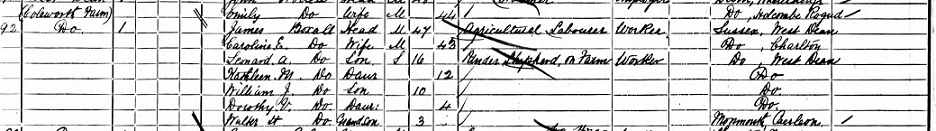 (Coleworth Farm) Emily Do Wife M 44 Do, Holcombe Rogus
92 Do 1 James Boxall Head M 47 Agricultural Labourer Worker Sussex, West Dean
Caroline E. Do Wife M 43 Do, Charlton
Leonard A. Do Son S 16 Under Shepherd, on Farm Worker Do, West Dean
Kathleen M. Do Daur 12 Do
William J. Do Son 10 Do
Dorothy V. Do Daur 4 Do.
Walter St Do Grandson 3 Monmouth, Caerleon